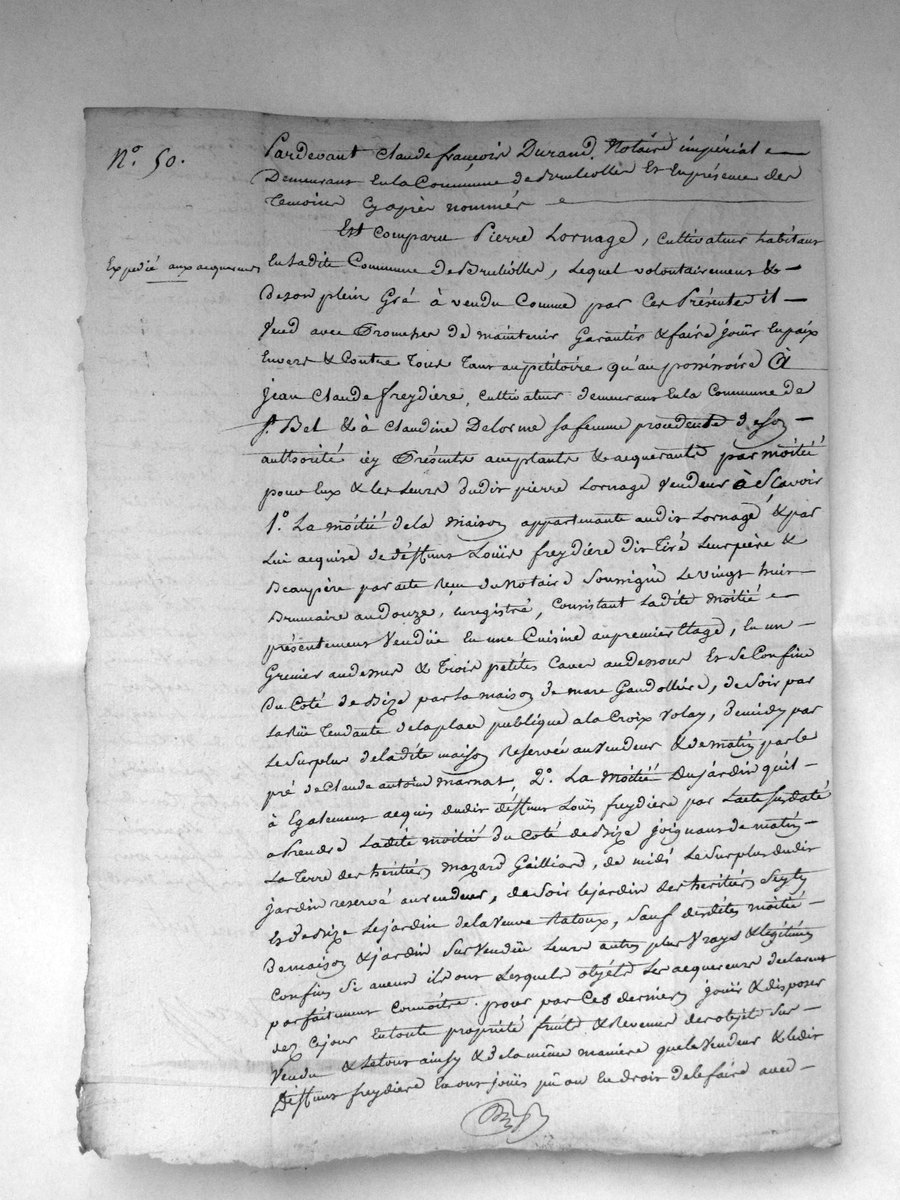 N.o 50.
Pardevant Claude françois Durand. Notaire impérial
Demeurant En la Commune de Brullioles Et En présence des
Temoins Cy après nommés
Est Comparu Pierre Lornage, Cultivateur habitant
Expédié aux acquereurs
En ladite Commune de Brullioles, lequel volontairement &
De son plein Gré à vendu Comme par Ces Présentes il
Vend avec Promesse de maintenir Garantir & faire joüir En paix
Envers & Contre Tous Tant au pétitoire qu'au possessoire à
jean Claude freydiere, Cultivateur demeurant En la Commune de
St. Bel & à Claudine Delorme sa femme procedente de son
authorité icy Présents acceptants & acquerants par moitié
pour Eux & les Leurs dudit pierre Lornage Vendeur à Scavoir
1.o La moitié de la maison appartenante audit Lornage & par
Lui acquise de déffunt Louïs freydiére dit Tiré Leur père &
Beaupère par acte Reçu du Notaire Soussigné Le vingt huit
Brumaire an douze, Enregistré, Consistant Ladite moitié
présentement Vendüe En une Cuisine au premier Etage, En un
Grenier au dessus & Trois petites Caves au dessous Et Se Confine
Du Coté de Bize par la maison de marc Gaudollière, de Soir par
La Rüe Tendante de la place publique a la Croix Volay, de midy par
Le Surplus de la dite maison Reservée au Vendeur & de matin par le
pré de Claude antoine marnat, 2.o La moitié Du jardin qu'il
à Egalement acquis dudit déffunt Louïs freydière par L'acte Susdaté
a Prendre Ladite moitié Du Coté de Bize joignant de matin
La Terre des héritiers mazard Gailliard, de midi Le Surplus dudit
jardin reservé au vendeur, de Soir le jardin des héritiers Seyty
Et de Bize Le jardin de la Veuve Ratoux, Sauf desdites moitié
De maison & jardin Sus Vendüe Leurs autres plus Vrays & légitimes
Confins Si aucun ils ont Lesquels objéts Les acquereurs déclarent
parfaitement Connoitre. pour par Ces derniers joüir & disposer
dez Cejour En toute propriété fruits & Revenus des objets Sus
Vendu & le tout ainsy & de la même manière que le Vendeur & ledit
Déffunt freydiere En ont joüis pû ou En droit de le faire avec